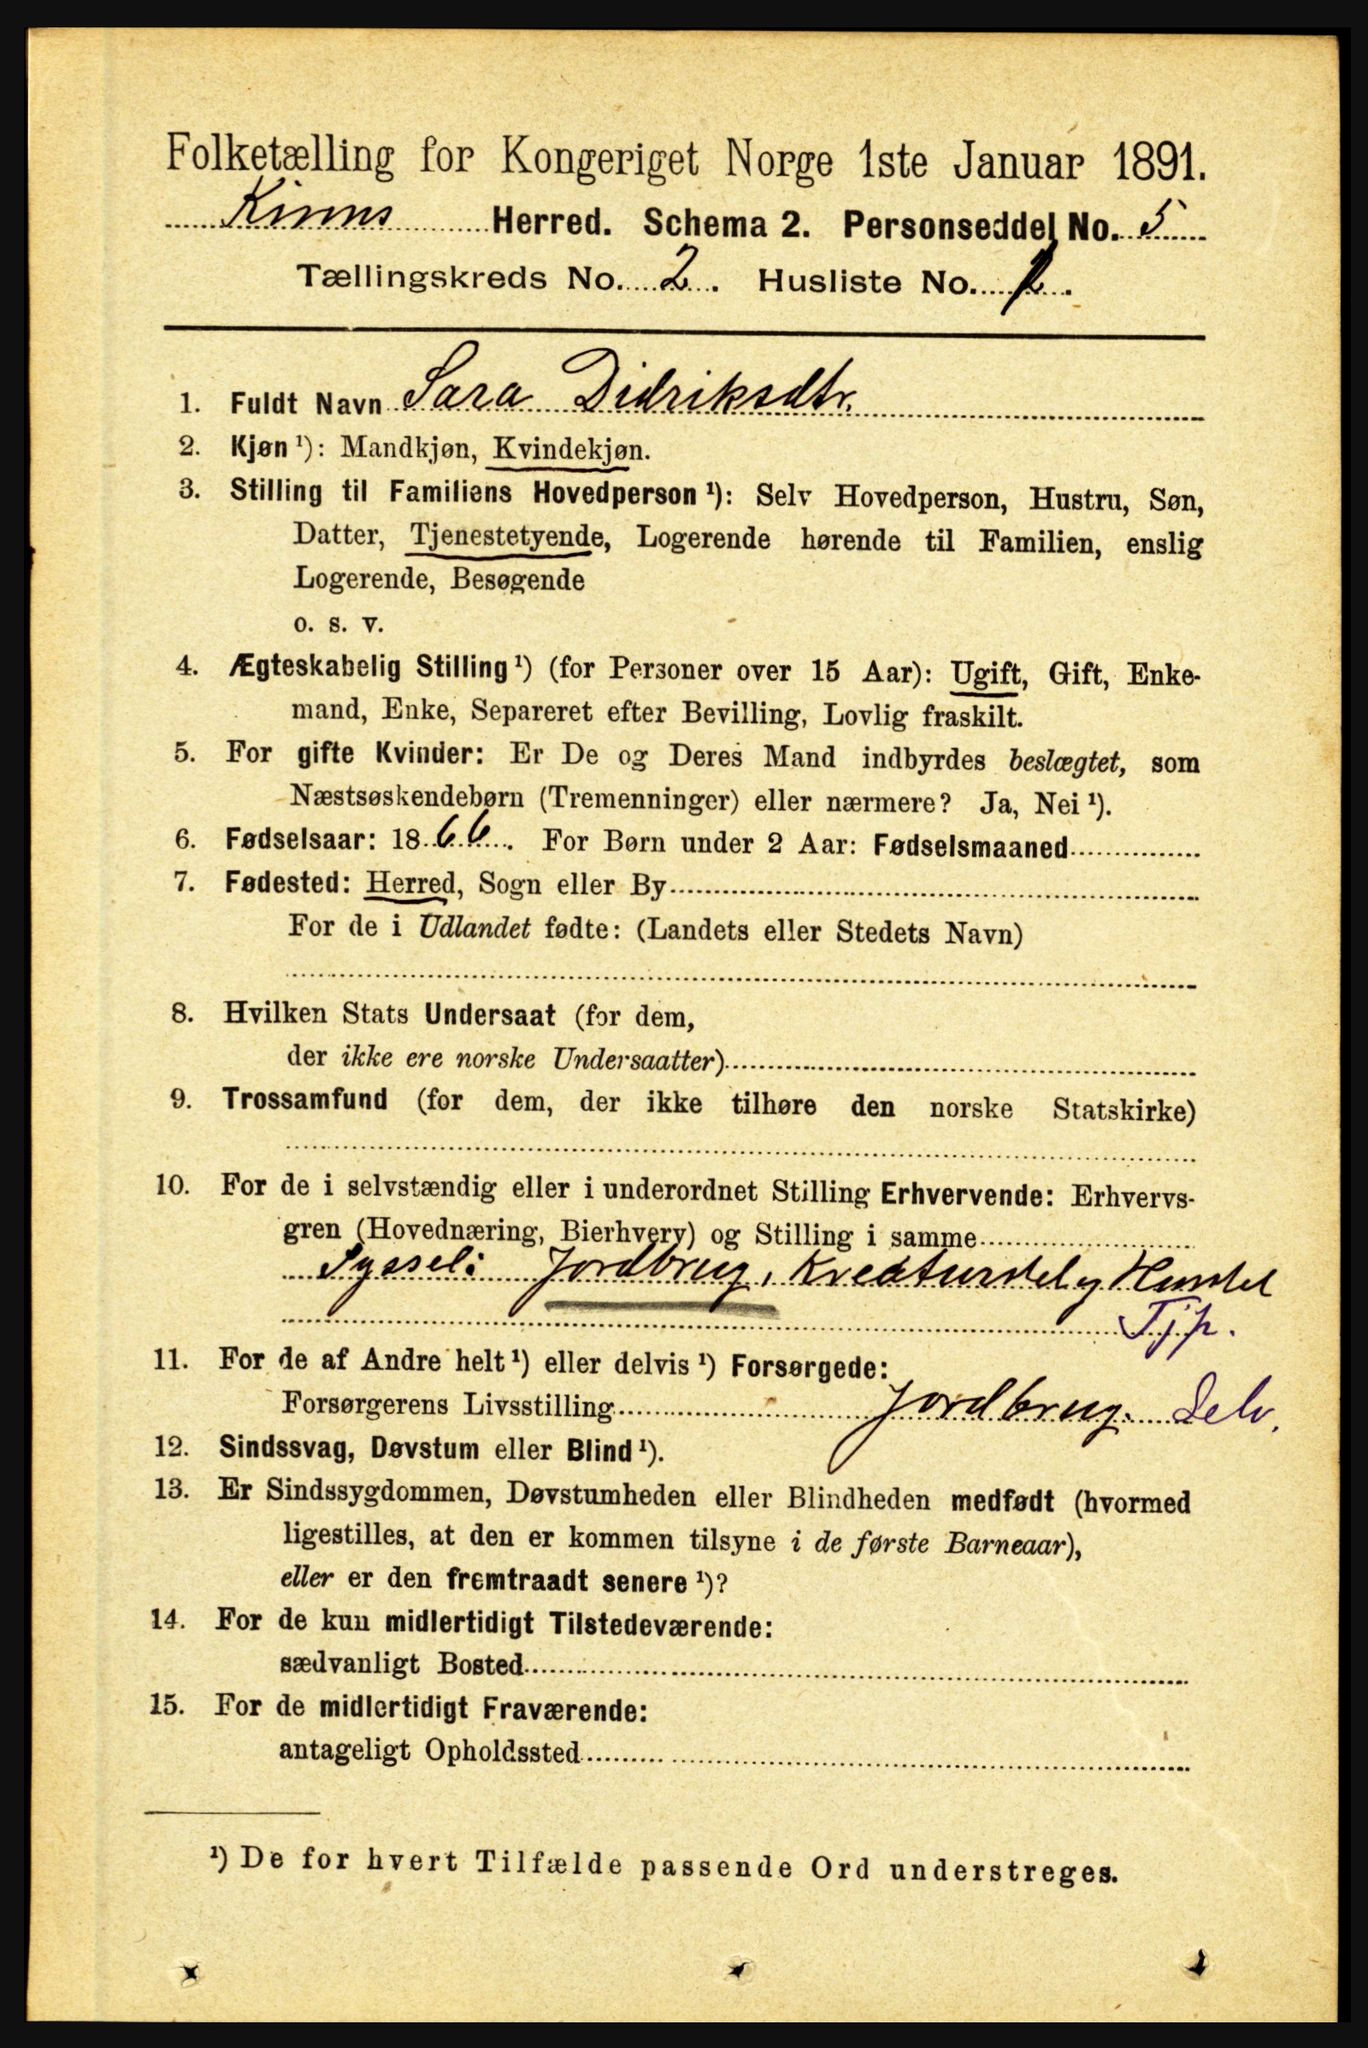 Folketælling for Kongeriget Norge 1ste Januar 1891.
Kinns Herred. Schema 2. Personseddel No. 5
Tællingskreds No. 2. Husliste No. 1.
1. Fuldt Navn Sara Didriksdtr.
2. Kjøn¹): Mandkjøn, Kvindekjøn.
3. Stilling til Familiens Hovedperson¹): Selv Hovedperson, Hustru, Søn,
Datter, Tjenestetyende, Logerende hørende til Familien, enslig
Logerende, Besøgende
o. s. v.
4. Ægteskabelig Stilling¹) (for Personer over 15 Aar): Ugift, Gift, Enke-
mand, Enke, Separeret efter Bevilling, Lovlig fraskilt.
5. For gifte Kvinder: Er De og Deres Mand indbyrdes beslægtet, som
Næstsøskendebørn (Tremenninger) eller nærmere? Ja, Nei¹).
6. Fødselsaar: 1866. For Børn under 2 Aar: Fødselsmaaned
7. Fødested: Herred, Sogn eller By
For de i Udlandet fødte: (Landets eller Stedets Navn)
8. Hvilken Stats Undersaat (for dem,
der ikke ere norske Undersaatter)
9. Trossamfund (for dem, der ikke tilhøre den norske Statskirke)
10. For de i selvstændig eller i underordnet Stilling Erhvervende: Erhvervs-
gren (Hovednæring, Bierhverv) og Stilling i samme
Syssel: Jordbrug, Kreaturstel og Husstel
Tjp.
11. For de af Andre helt¹) eller delvis¹) Forsørgede:
Forsørgerens Livsstilling Jordbrug. Selv.
12. Sindssvag, Døvstum eller Blind¹).
13. Er Sindssygdommen, Døvstumheden eller Blindheden medfødt (hvormed
ligestilles, at den er kommen tilsyne i de første Barneaar),
eller er den fremtraadt senere¹)?
14. For de kun midlertidigt Tilstedeværende:
sædvanligt Bosted
15. For de midlertidigt Fraværende:
antageligt Opholdssted
¹) De for hvert Tilfælde passende Ord understreges.